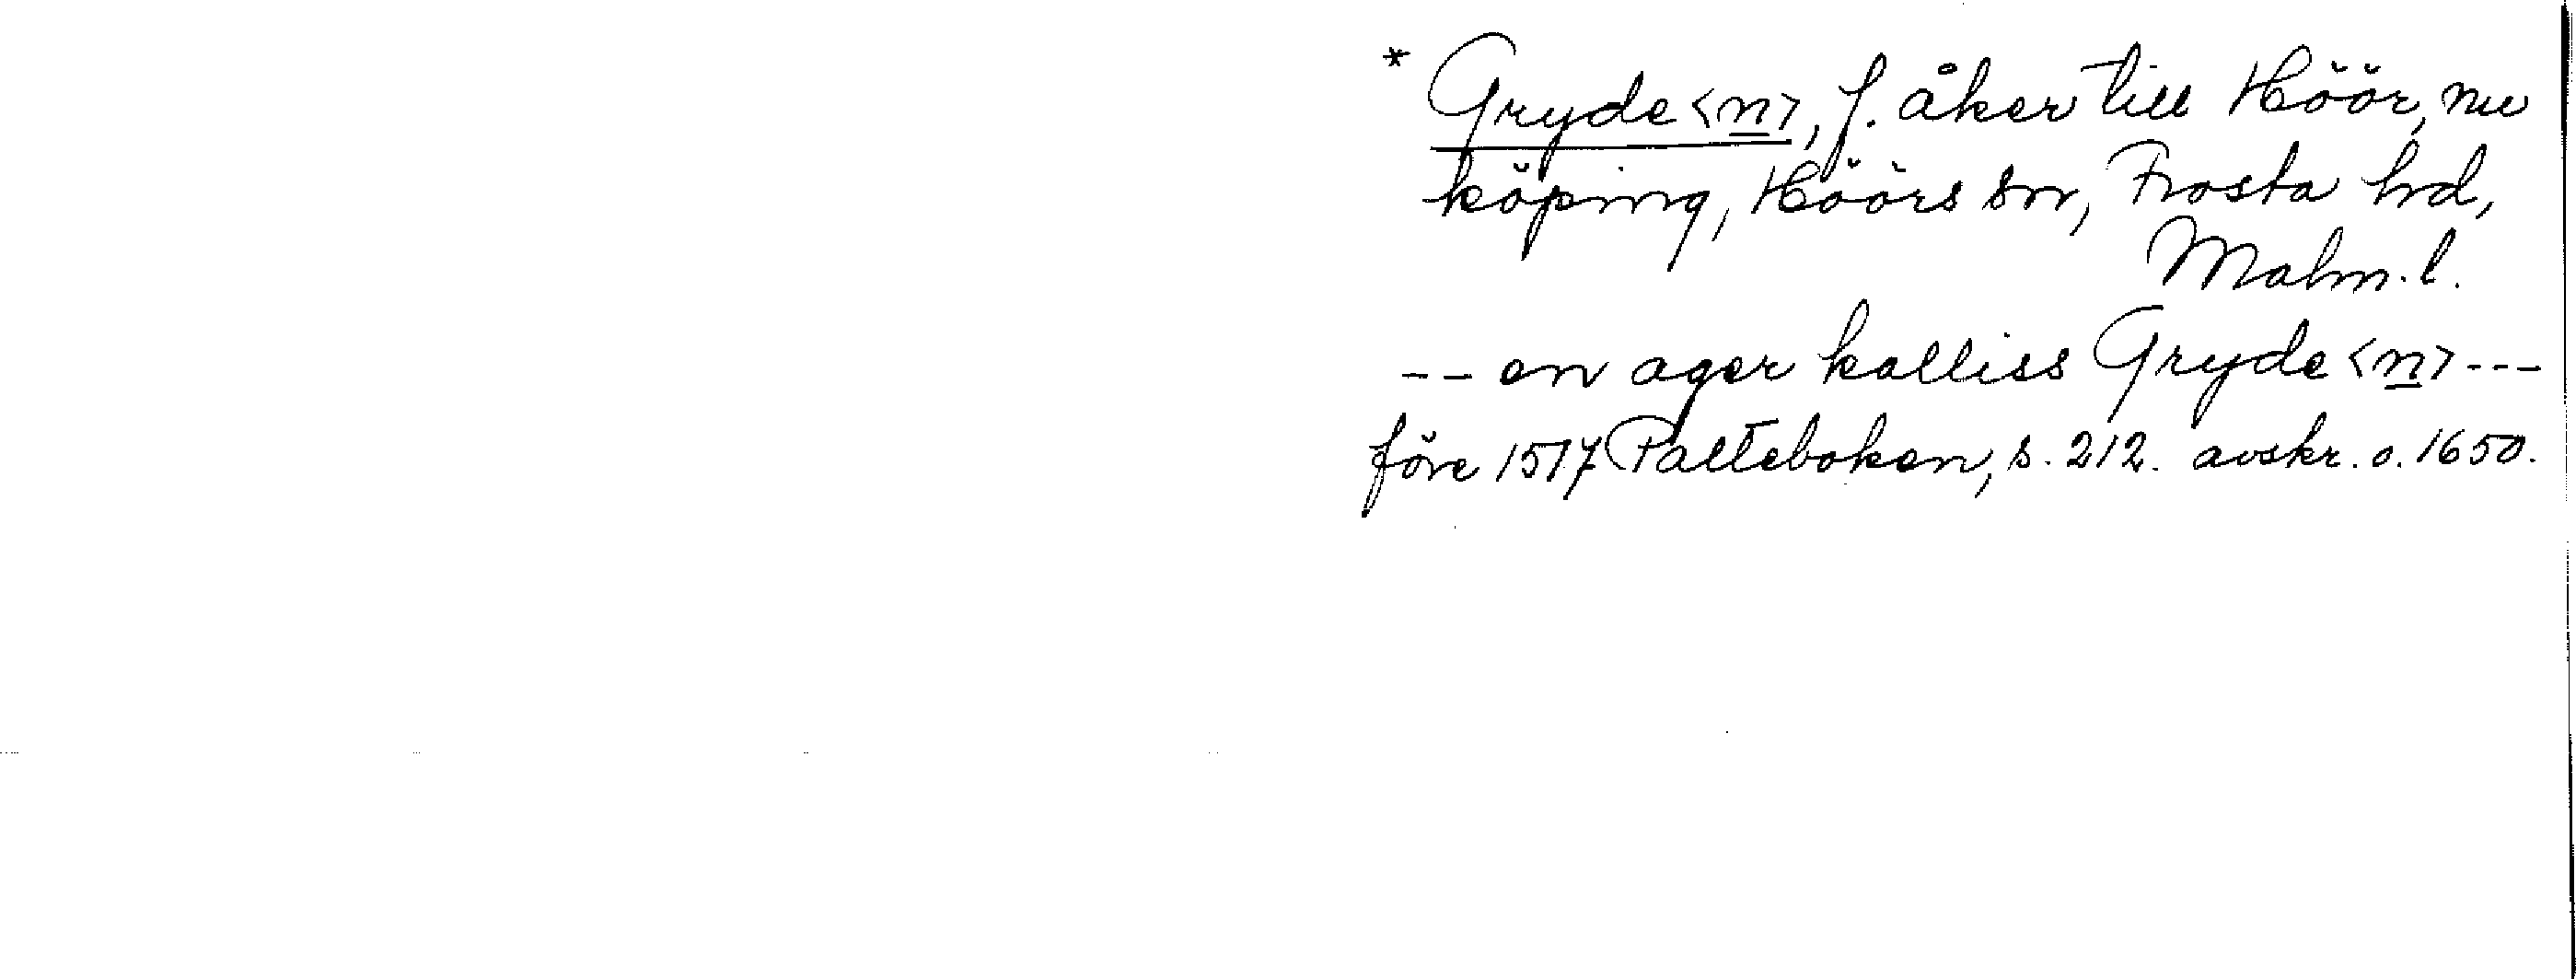 * Gryde<n>, f. åker till Höör, nu
köping, Höörs sn, Frosta hd,
Malm. l.
-- en ager kalliss Gryde<n> ---
före 1517 Palteboken, s. 212. avskr. o. 1650.